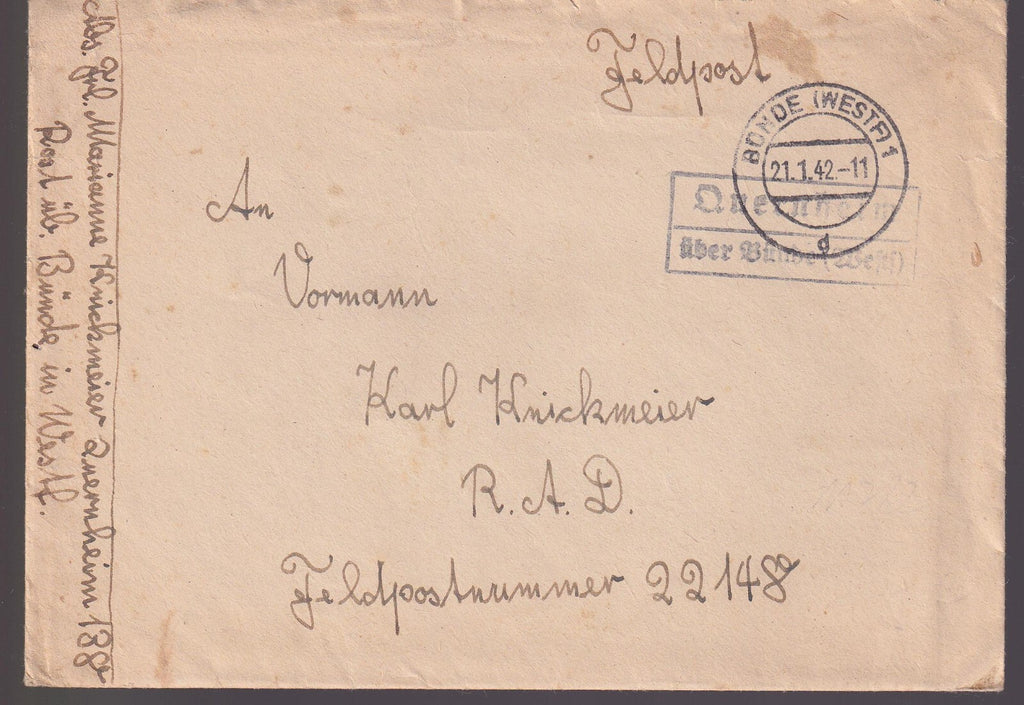 Feldpost
BÜNDE (WESTF) 1
21.1.42.-11
d
Quernheim
über Bünde (Westf)
An
Vormann
Karl Knickmeier
R.A.D.
Feldpostnummer 22148
Abs. Frl. Marianne Knickmeier Quernheim 138
Post üb. Bünde, in Westf.